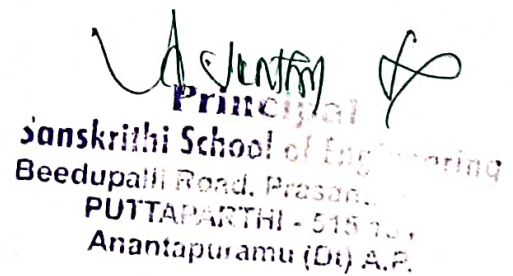 Principal
Sanskrithi School of Engineering
Beedupalli Road, Prasan
PUTTAPARTHI - 515
Anantapuramu (Dt) A.P.